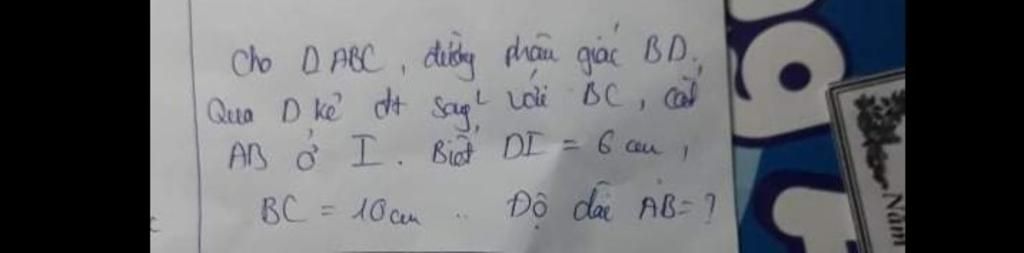 Cho D ABC, đường phân giác BD.
Qua D kẻ đt sog² với BC, cắt
AB ở I. Biết DI = 6 cm,
BC = 10 cm .. Độ dài AB = ?
Năm